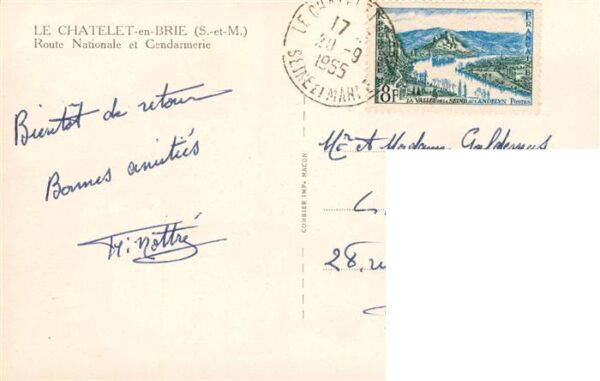 LE CHATELET-en-BRIE (S.-et-M.)
Route Nationale et Gendarmerie
LE CHATELET
17
20 -9
1955
SEINE ET MARNE
8F
FRANÇAISE
LA VALLÉE DE LA SEINE AUX ANDELYS Postes
Bientôt de retour
Bonnes amitiés
COMBIER IMP. MACON
Mr et Madame
28, rue